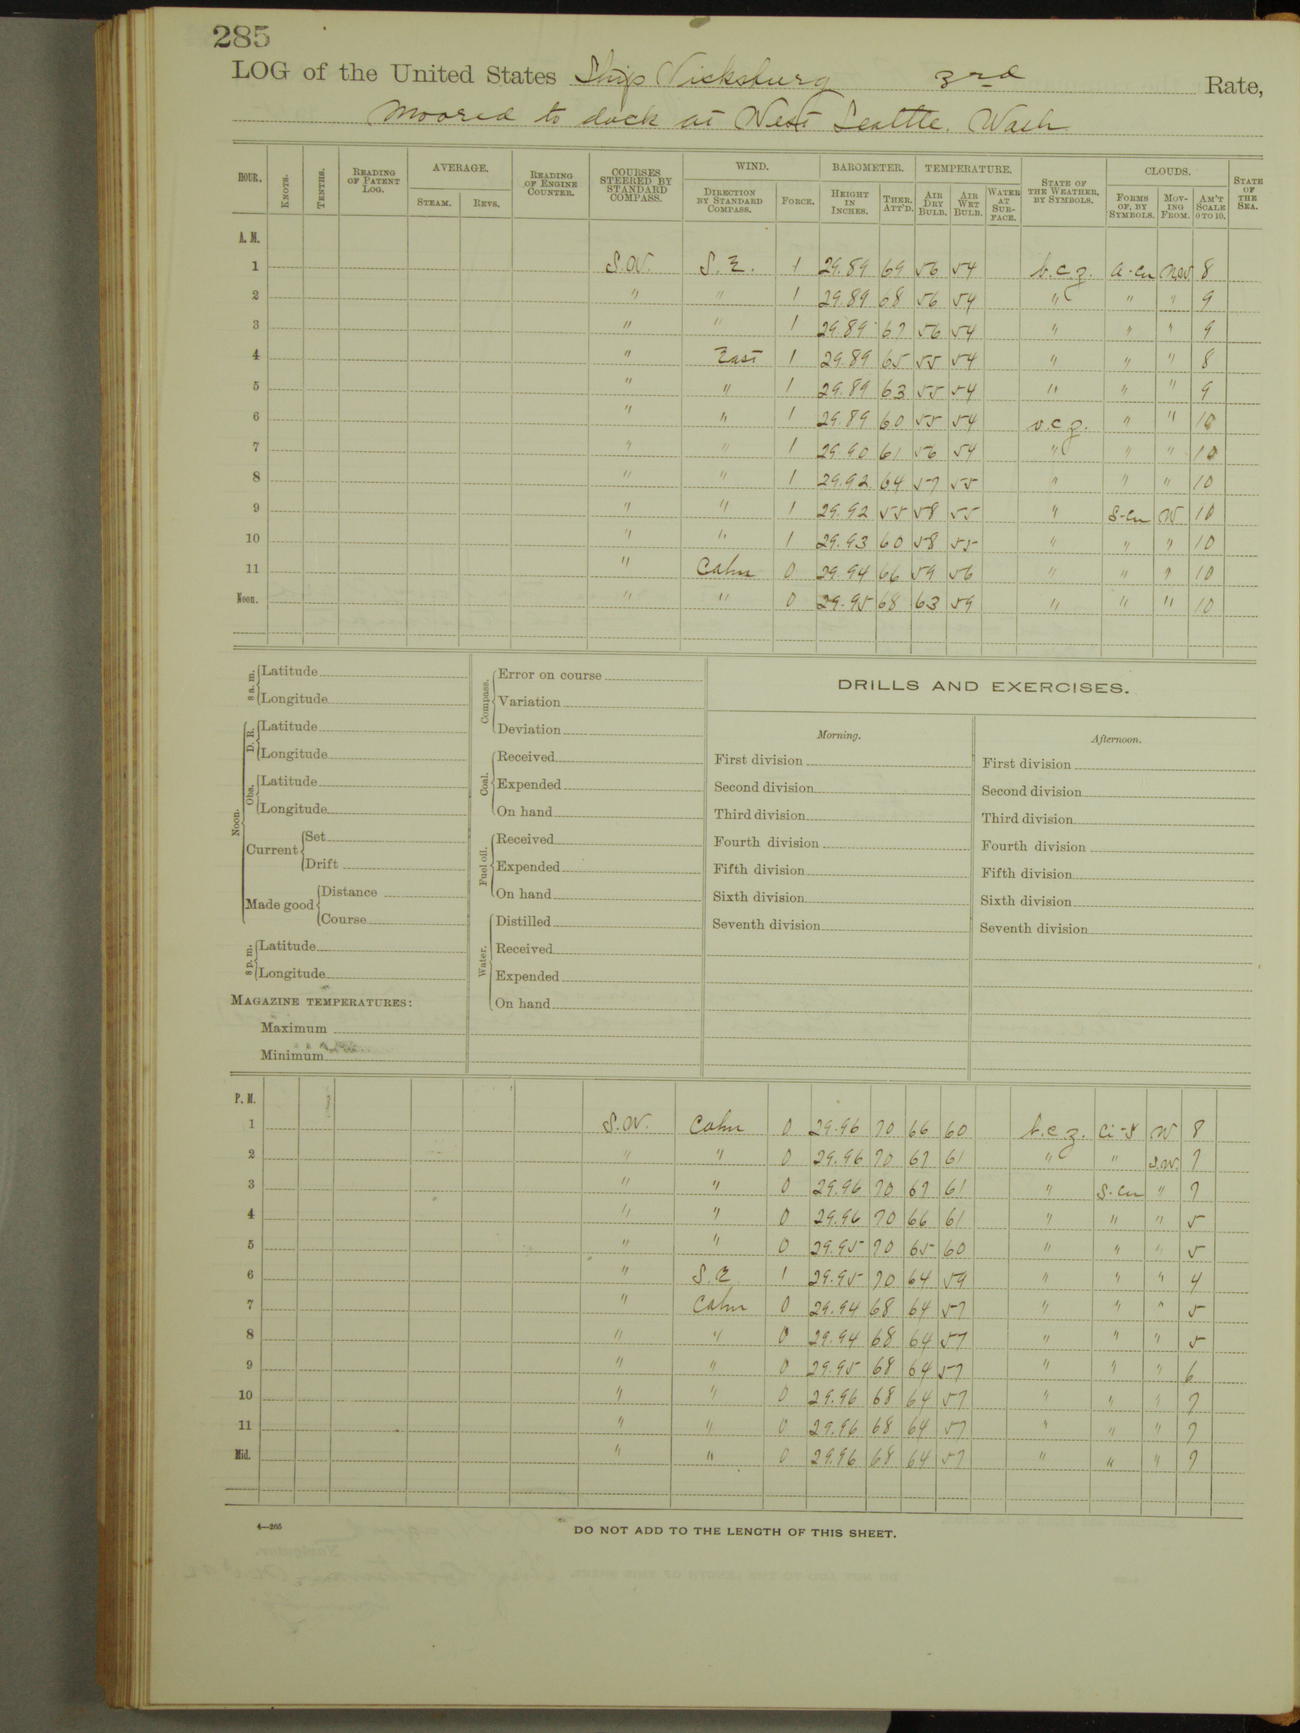 285
LOG of the United States Ship Vicksburg 3rd Rate,
Moored to dock at West Seattle. Wash
HOUR. KNOTS. TENTHS. READING OF PATENT LOG. AVERAGE. STEAM. REVS. READING OF ENGINE COUNTER. COURSES STEERED BY STANDARD COMPASS. WIND. DIRECTION BY STANDARD COMPASS. FORCE. BAROMETER. HEIGHT IN INCHES. THER. ATT'D. TEMPERATURE. AIR DRY BULB. AIR WET BULB. WATER AT SURFACE. STATE OF THE WEATHER, BY SYMBOLS. CLOUDS. FORMS OF, BY SYMBOLS. MOVING FROM. AM'T SCALE 0 TO 10. STATE OF THE SEA.
A. M.
1 S.W. S.E. 1 29.89 69 56 54 b.c.z. a-cu 8
2 " " 1 29.89 68 56 54 " " " 9
3 " " 1 29.89 67 56 54 " " " 9
4 " East 1 29.89 65 55 54 " " " 8
5 " " 1 29.89 63 55 54 " " " 9
6 " " 1 29.89 60 55 54 o.c.z. " " 10
7 " " 1 29.90 61 56 54 " " " 10
8 " " 1 29.92 64 57 55 " " " 10
9 " " 1 29.92 55 58 55 " S-cu W 10
10 " " 1 29.93 60 58 55 " " " 10
11 " Calm 0 29.94 66 59 56 " " " 10
Noon. " " 0 29.95 68 63 59 " " " 10
8 a. m. Latitude
Longitude
Noon. D. R. Latitude
Longitude
Obs. Latitude
Longitude
Current Set
Drift
Made good Distance
Course
8 p. m. Latitude
Longitude
MAGAZINE TEMPERATURES:
Maximum
Minimum
Compass. Error on course
Variation
Deviation
Coal. Received
Expended
On hand
Fuel oil. Received
Expended
On hand
Water. Distilled
Received
Expended
On hand
DRILLS AND EXERCISES.
Morning. Afternoon.
First division First division
Second division Second division
Third division Third division
Fourth division Fourth division
Fifth division Fifth division
Sixth division Sixth division
Seventh division Seventh division
P. M.
1 S.W. Calm 0 29.96 70 66 60 b.c.z. Ci-S W 8
2 " " 0 29.96 70 67 61 " " S.W. 7
3 " " 0 29.96 70 67 61 " S-cu " 7
4 " " 0 29.96 70 66 61 " " " 5
5 " " 0 29.95 70 65 60 " " " 5
6 " S.E. 1 29.95 70 64 59 " " " 4
7 " Calm 0 29.94 68 64 57 " " " 5
8 " " 0 29.94 68 64 57 " " " 5
9 " " 0 29.95 68 64 57 " " " 6
10 " " 0 29.96 68 64 57 " " " 7
11 " " 0 29.96 68 64 57 " " " 7
Mid. " " 0 29.96 68 64 57 " " " 7
4—265
DO NOT ADD TO THE LENGTH OF THIS SHEET.